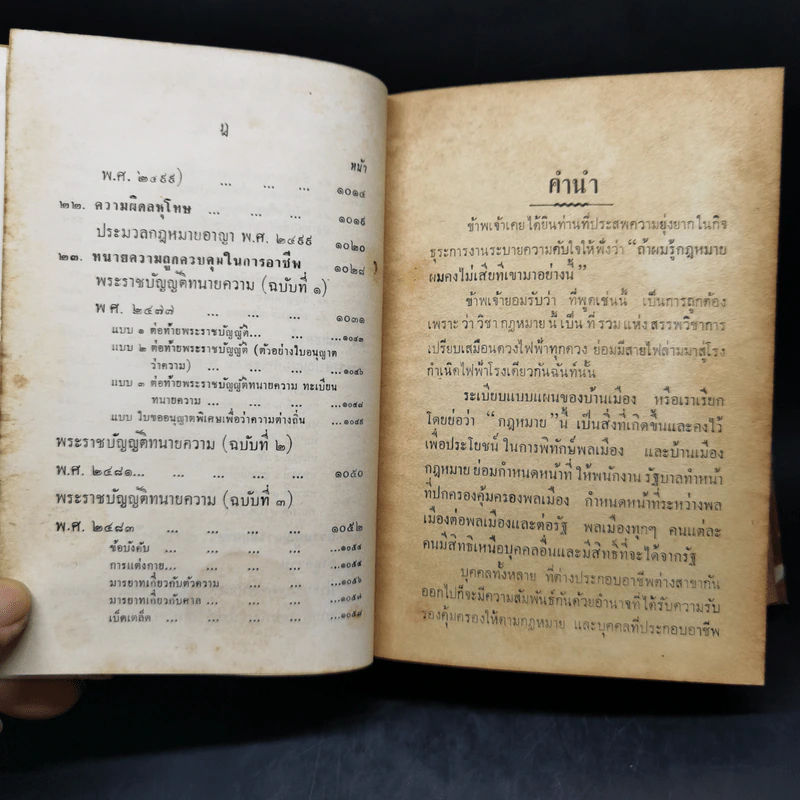 ฎ
หน้า
พ.ศ. ๒๔๙๙) ... ... ... ๑๐๑๔
๒๒. ความผิดลหุโทษ ... ... ... ๑๐๑๙
ประมวลกฎหมายอาญา พ.ศ. ๒๔๙๙ ๑๐๒๐
๒๓. ทนายความถูกควบคุมในการอาชีพ ๑๐๒๘
พระราชบัญญัติทนายความ (ฉบับที่ ๑)
พ ศ. ๒๔๗๗ ... ... ... ๑๐๓๑
แบบ ๑ ต่อท้ายพระราชบัญญัติ... ... ...๑๐๔๓
แบบ ๒ ต่อท้ายพระราชบัญญัติ (ตัวอย่างใบอนุญาต
ว่าความ) ... ... ... ...๑๐๔๖
แบบ ๓ ต่อท้ายพระราชบัญญัติทนายความ ทะเบียน
ทนายความ ... ... ... ...๑๐๔๘
แบบ ใบขออนุญาตพิเศษเพื่อว่าความต่างถิ่น ...๑๐๔๙
พระราชบัญญัติทนายความ (ฉบับที่ ๒)
พ.ศ. ๒๔๘๑... ... ... ... ๑๐๕๐
พระราชบัญญัติทนายความ (ฉบับที่ ๓)
พ.ศ. ๒๔๘๓ ... ... ... ... ๑๐๕๒
ข้อบังคับ ... ... ... ...๑๐๕๔
การแต่งกาย... ... ... ...๑๐๕๔
มารยาทเกี่ยวกับตัวความ ... ... ...๑๐๕๖
มารยาทเกี่ยวกับศาล ... ... ... ...๑๐๕๗
เบ็ดเตล็ด ... ... ... ...๑๐๕๗
คำนำ
ข้าพเจ้าเคยได้ยินท่านที่ประสพความยุ่งยากในกิจ
ธุระการงานระบายความคับใจให้ฟังว่า “ถ้าผมรู้กฎหมาย
ผมคงไม่เสียที่เขามาอย่างนี้”
ข้าพเจ้ายอมรับว่า ที่พูดเช่นนี้ เป็นการถูกต้อง
เพราะ ว่า วิชา กฎหมาย นี้ เป็น ที่ รวม แห่ง สรรพวิชาการ
เปรียบเสมือนดวงไฟฟ้าทุกดวง ย่อมมีสายไฟล่ามมาสู่โรง
กำเนิดไฟฟ้าโรงเดียวกันฉันท์นั้น
ระเบียบแบบแผนของบ้านเมือง หรือเราเรียก
โดยย่อว่า “ กฎหมาย” นี้ เป็นสิ่งที่เกิดขึ้นและคงไว้
เพื่อประโยชน์ ในการพิทักษ์พลเมือง และบ้านเมือง
กฎหมาย ย่อมกำหนดหน้าที่ ให้ พนักงาน รัฐบาลทำหน้า
ที่ปกครองคุ้มครองพลเมือง กำหนดหน้าที่ระหว่างพล
เมืองต่อพลเมืองและต่อรัฐ พลเมืองทุกๆ คนแต่ละ
คนมีสิทธิเหนือบุคคลอื่นและมีสิทธิ์ที่จะได้จากรัฐ
บุคคลทั้งหลาย ที่ต่างประกอบอาชีพต่างสาขากัน
ออกไปก็จะมีความสัมพันธ์กันด้วยอำนาจที่ได้รับความรับ
รองคุ้มครองให้ตามกฎหมาย และบุคคลที่ประกอบอาชีพ